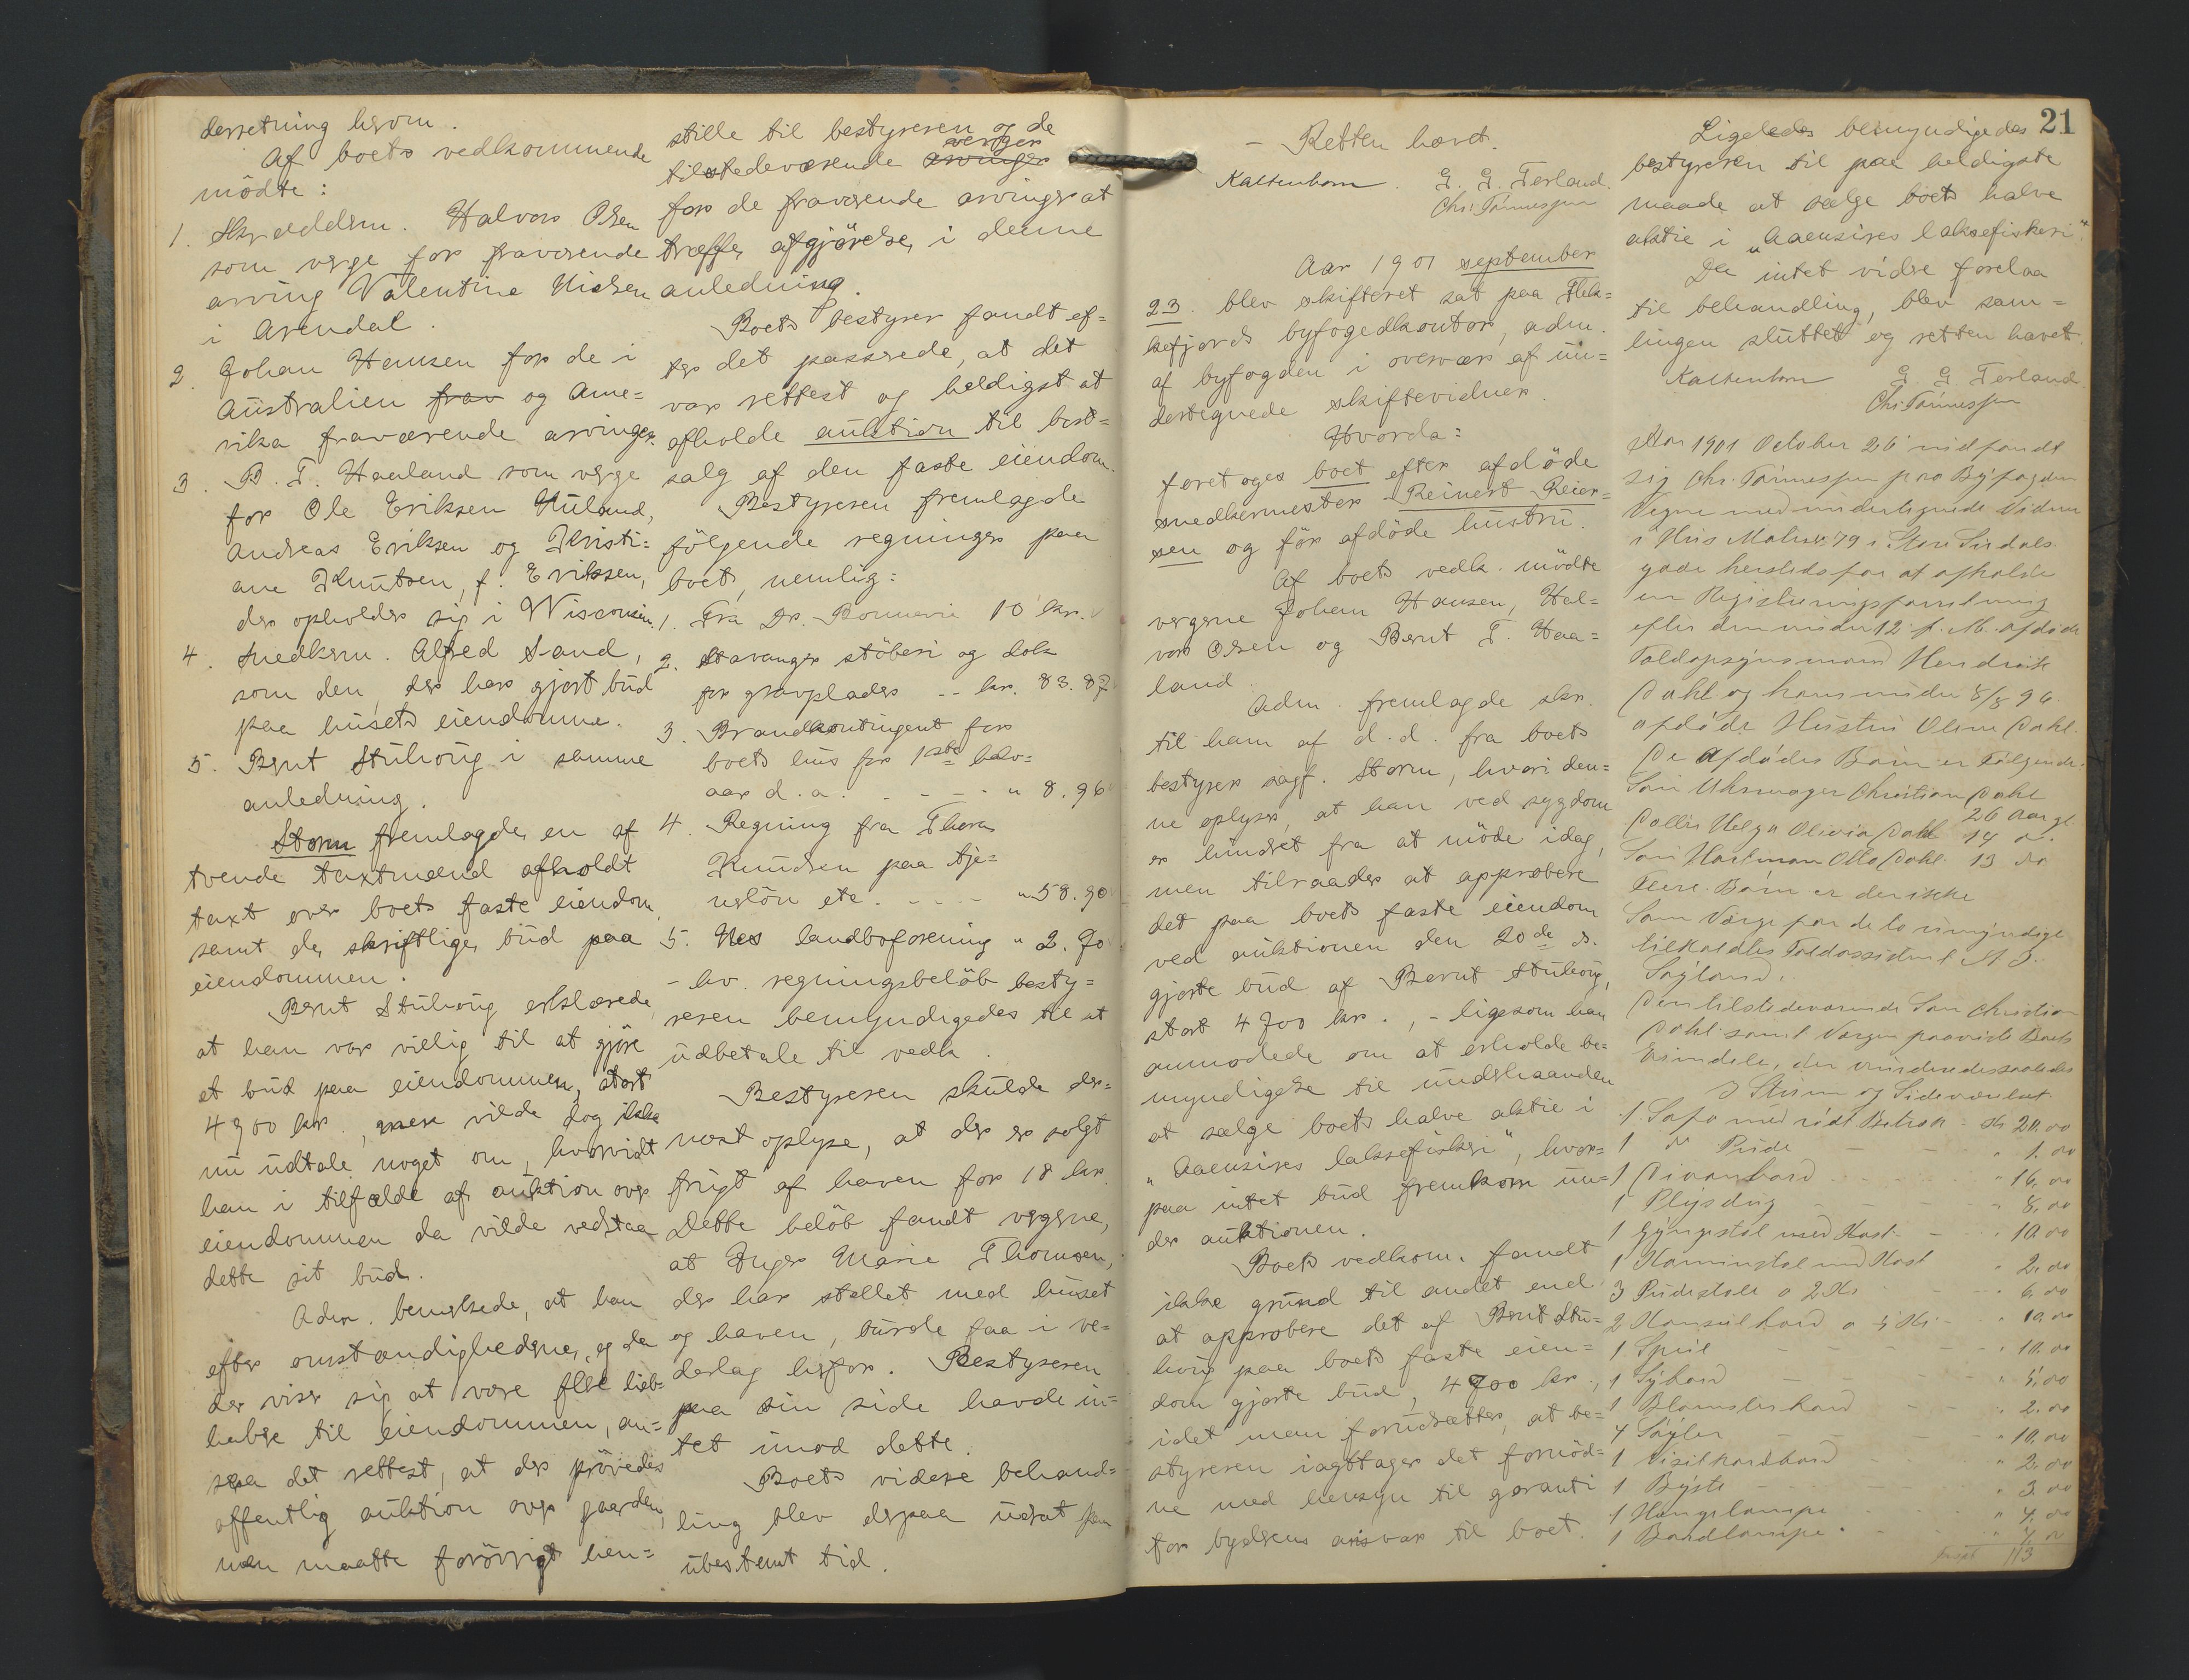 derretning herom.
Af boets vedkommende
mödte:
1. Skrædderm. Halvor Olsen
som verge for fraværende
arving Valentine Nielsen
i Arendal.
2. Johan Hansen for de i
Australien frav og Ame=
rika fraværende arvinger.
3. B. T. Haaland som verge
for Ole Eriksen Nuland,
Andreas Eriksen og Kristi=
ane Knutsen, f. Eriksen,
der opholder sig i Wisconsin.
4. Snedkerm. Alfred Sand,
som den, der har gjort bud
paa husets eiendomme.
5. Bernt Stuhoug i samme
anledning.
Storm fremlagde en af
tvende taxtmænd afholdt
taxt over boets faste eiendom
samt de skriftlige bud paa
eiendommen.
Bernt Stuhoug erklærede,
at han var villig til at gjöre
et bud paa eiendommen, stort
4700 kr., men vilde dog ikke
nu udtale noget om, hvorvidt
han i tilfælde af auktion over
eiendommen da vilde vedstaa
dette sit bud.
Adm. bemerkede, at han
efter omstændighederne, og da
der viser sig at være flere lieb-
habere til eiendommen, an=
saa det rettest, at der prövedes
offentlig auktion over gaarden,
men maatte forövrigt hen=
stille til bestyreren og de
verger
tilstedeværende arvinger
for de fraværende arvinger at
træffe afgjörelse i denne
anledning.
Boets bestyrer fandt ef=
ter det passerede, at det
var rettest og heldigst at
afholde auktion til bort=
salg af den faste eiendom.
Bestyreren fremlagde
fölgende regninger paa
boet, nemlig:
1. Fra Dr. Bonnevie 10 kr.
2. Stavanger stöberi og dok
for gravplader -- kr. 83.87
3. Brandkontingent for
boets hus for 1ste halv=
aar d.a. - - - - " 8.96
4. Regning fra Thora
Knudsen paa tje=
nerlön etc. - - - - " 58.90
5. Nes landboforening " 2.70
- hv. regningsbelöb besty=
reren bemyndigedes til at
udbetale til vedk.
Bestyreren skulde der=
næst oplyse, at der er solgt
frugt af haven for 18 kr.
Dette belöb fandt vergerne,
at Inger Marie Thomsen,
der har stellet med huset
og haven, burde faa i ve=
derlag herfor. Bestyreren
paa sin side havde in=
tet imod dette.
Boets videre behand=
ling blev derpaa udsat paa
ubestemt tid.
- Retten hævet.
Kaltenborn. G. G. Terland.
Chr. Tönnessen
Aar 1901 september
23. blev skifteret sat paa Flek=
kefjords byfogedkontor, adm.
af byfogden i overvær af un=
dertegnede skiftevidner.
Hvorda:
foretoges boet efter afdöde
snedkermester Reinert Reier=
sen og för afdöde hustru.
Af boets vedk. mödte
vergerne Johan Hansen, Hal=
vor Olsen og Bernt T. Haa=
land.
Adm. fremlagde skr.
til ham af d.d. fra boets
bestyrer sagf. Storm, hvori den=
ne oplyser, at han ved sygdom
er hindret fra at möde idag,
men tilraader at approbere
det paa boets faste eiendom
ved auktionen den 20de ds.
gjorte bud af Bernt Stuhoug,
stort 4700 kr., - ligesom han
anmodede om at erholde be=
myndigelse til underhaanden
at sælge boets halve aktie i
"Aaensires laksefiskeri", hvor=
paa intet bud fremkom un=
der auktionen.
Boets vedkom. fandt
ikke grund til andet end
at approbere det af Bernt Stu=
houg paa boets faste eien=
dom gjorte bud, 4700 kr.,
idet man forudsætter, at be=
styreren iagttager det fornöd=
ne med hensyn til garanti
for byderens ansvar til boet.
21
Ligeledes bemyndigedes
bestyreren til paa heldigste
maade at sælge boets halve
aktie i "Aaensires laksefiskeri".
Da intet videre forelaa
til behandling, blev sam=
lingen sluttet og retten hævet.
Kaltenborn G G Terland
Chr. Tönnessen
Aar 1901 October 26 indfandt
sig Chr. Tönnessen paa Byfogdens
Vegne med undertegnede Vidner
i Hus Matr.nr. 79 i Store Sirdals
gade hersteds for at afholde
en Registreringsforretning
efter den under 12 f. M. afdöde
Toldopsynsmand Hendrik
Dahl og hans under 8/8 96
afdöde Hustru Oline Dahl.
De Afdödes Börn er Fölgende:
Sön Uhrmager Christian Dahl
26 Aar gl.
Datter Helga Olivia Dahl 14 do.
Sön Hartman Otto Dahl 13 do
Flere Börn er der ikke
Som Værge for de to umyndige
tilkaldtes Toldassistent A J.
Söyland.
Den tilstedeværende Sön Christian
Dahl samt Værgen paaviste Boets
Eiendele, der vurderedes saaledes
I Stuen og Sideværelset.
1 Sofa med rödt Betræk - Kr 20.00
1 do Pude - - - " 1.00
1 Divanbord - - - " 16.00
1 Plysdug - - - " 8.00
1 Gyngestol med Kast - - " 10.00
1 Kaminstol med Kast " 2.00
3 Rudestole a 2 Kr - - " 6.00
2 Konsulbord a 5 Kr - " 10.00
1 Speil - - - " 10.00
1 Sybord - - - " 5.00
1 Blomsterbord - - " 2.00
4 Söyler - - - " 10.00
1 Visitkortbord - - " 2.00
1 Byste - - - " 3.00
1 Hængelampe - - " 4.00
1 Bordlampe - - " 4.00
Transpt 113